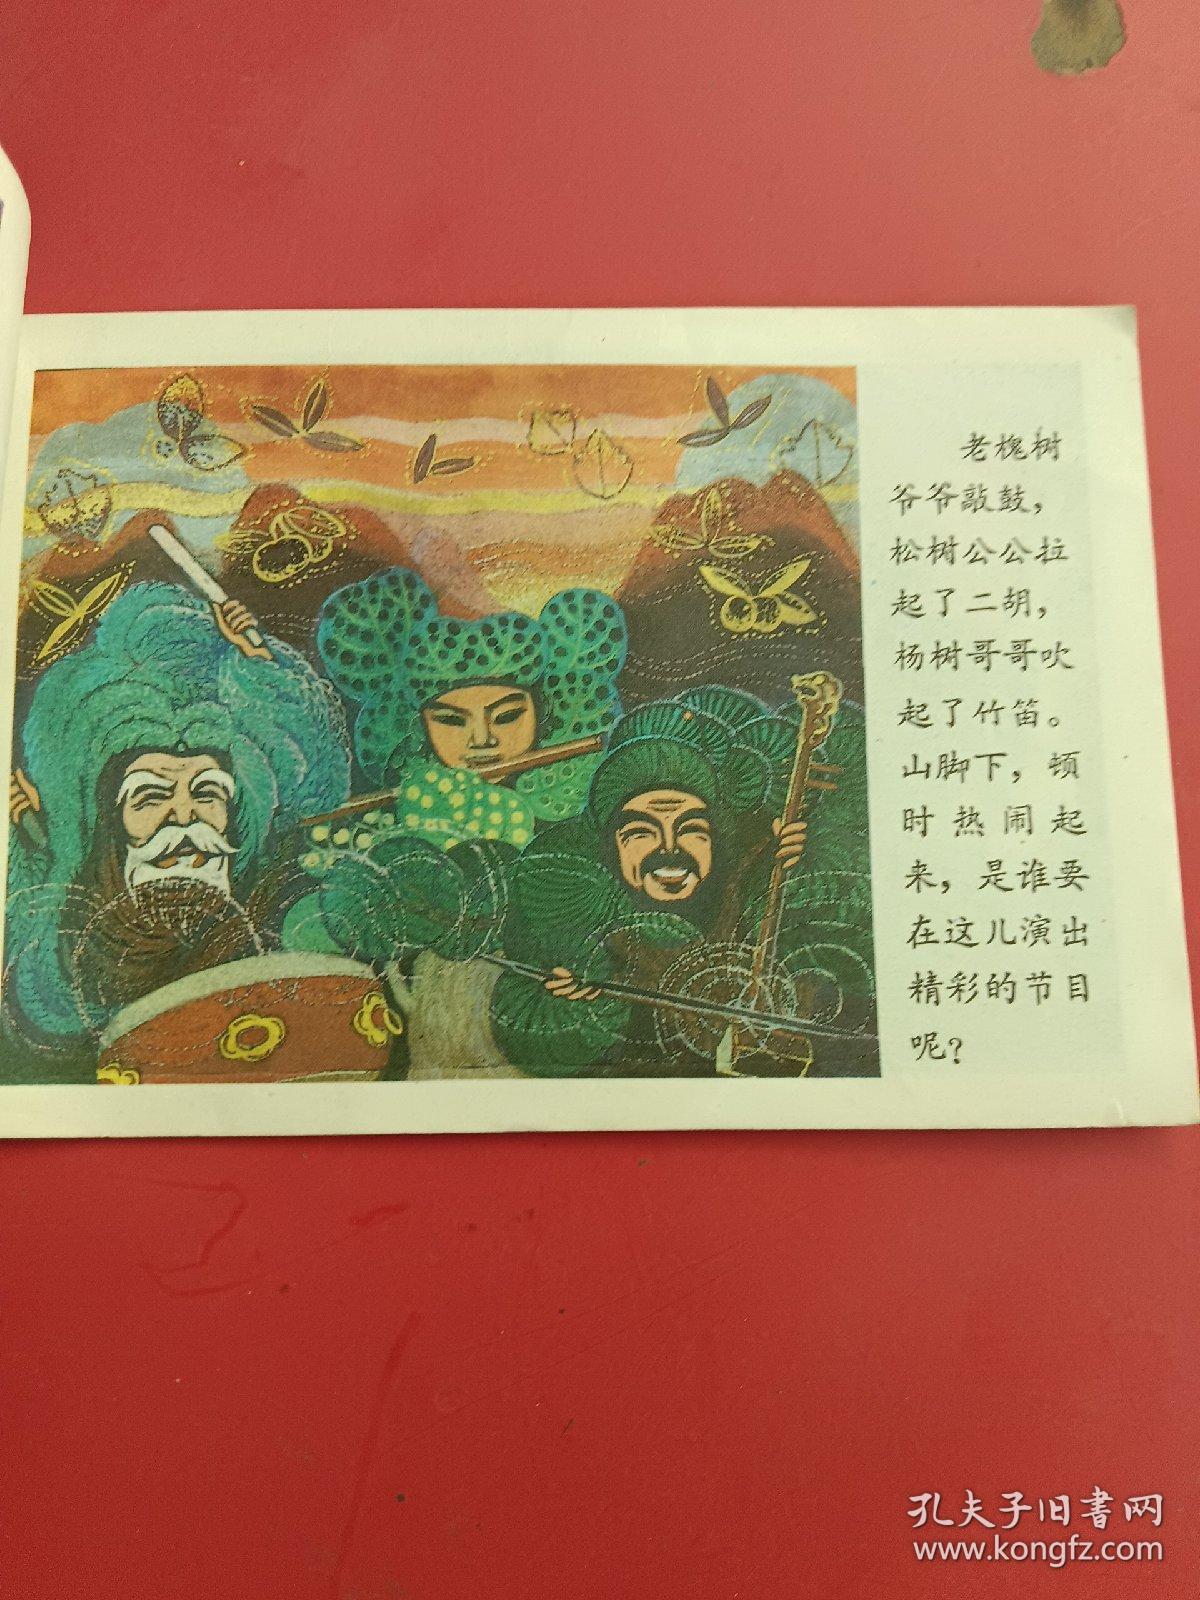 老槐树
爷爷敲鼓，
松树公公拉
起了二胡，
杨树哥哥吹
起了竹笛。
山脚下，顿
时热闹起
来，是谁要
在这儿演出
精彩的节目
呢？
孔夫子旧書网
www.kongfz.com